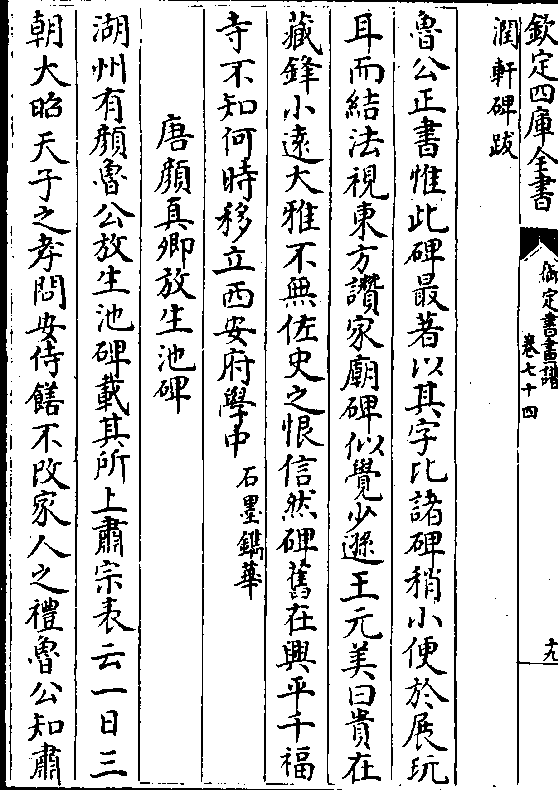 欽定四庫全書
御定書畫譜
卷七十四
十九
潤軒碑跋
魯公正書惟此碑最著以其字比諸碑稍小便於展玩
耳而結法視東方讚家廟碑似覺少遜王元美曰貴在
藏鋒小遠大雅不無佐史之恨信然碑舊在興平千福
寺不知何時移立西安府學中 石墨鐫華
唐顔真卿放生池碑
湖州有顔魯公放生池碑載其所上肅宗表云一日三
朝大昭天子之孝問安侍饍不改家人之禮魯公知肅